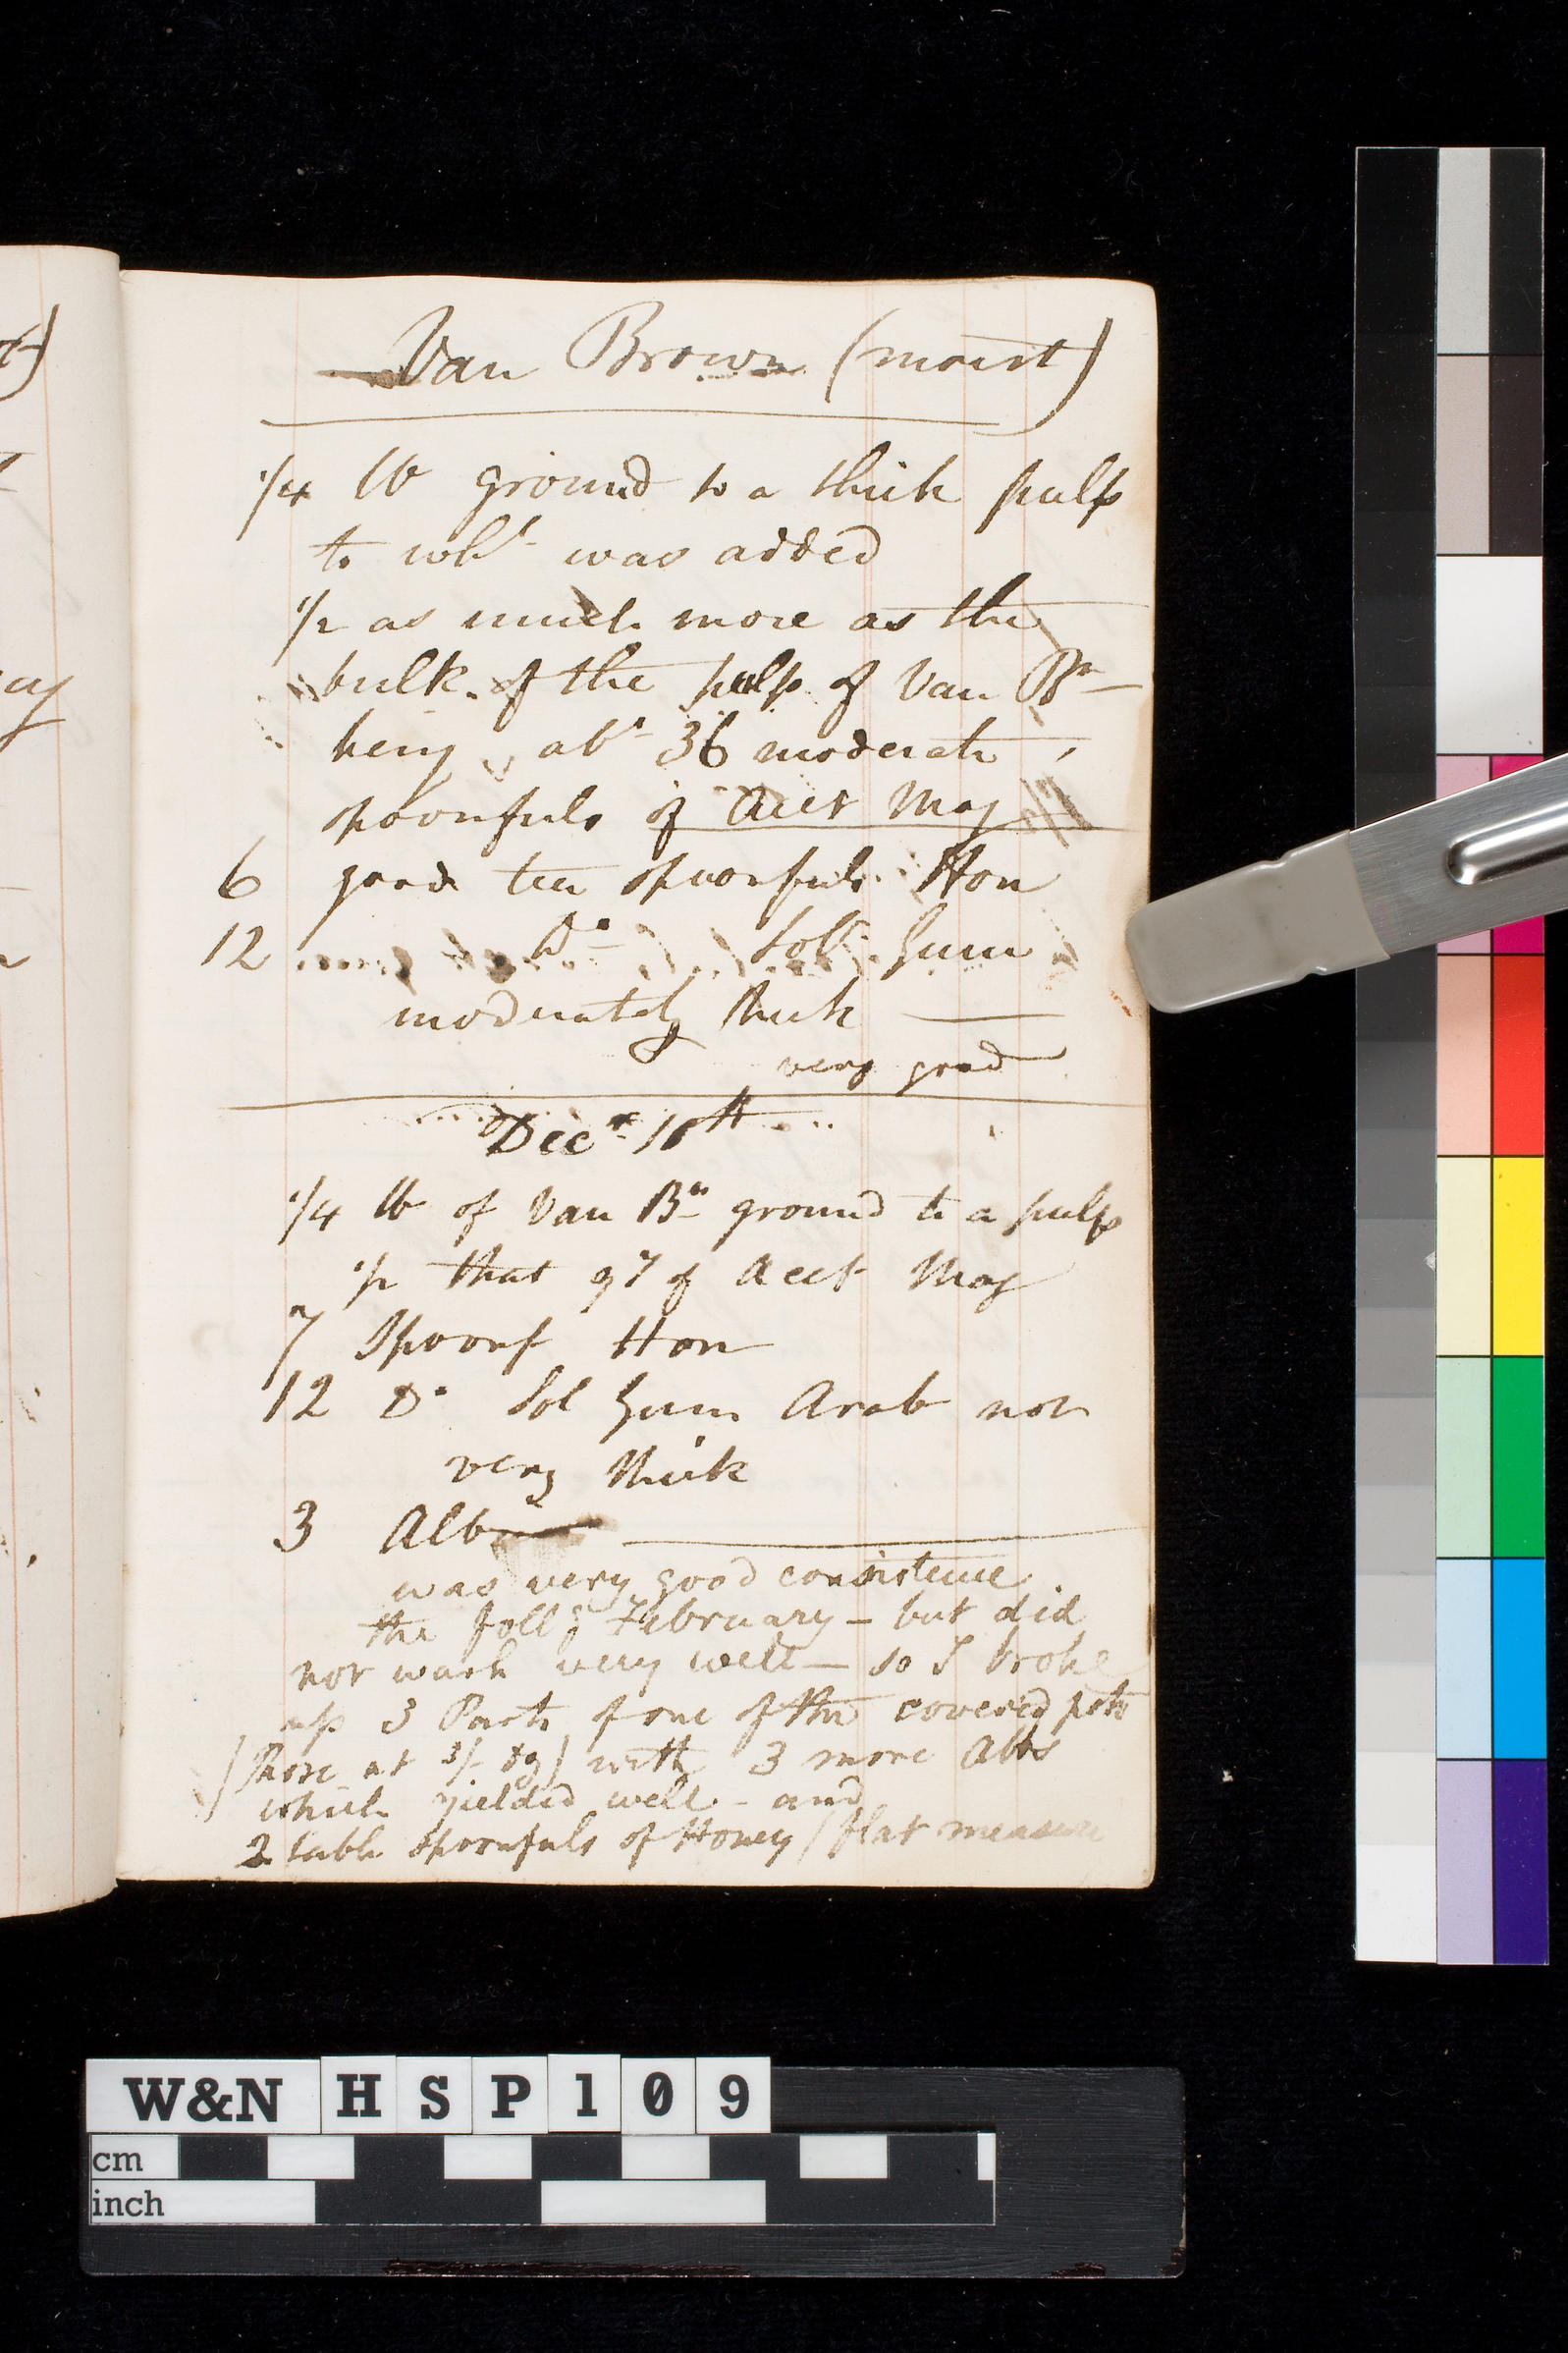 Van Brown (moist)
1/4 lb ground to a thick pulp
to wh^h was added
1/2 as much more as the
bulk of the pulp of Van Bn
being abt 36 moderate
spoonfuls of Acet Mag
6 good tea spoonfuls Hon
12 Do Sol Gum
moderately thick
very good
Decr 10th
1/4 lb of Van Bn ground to a pulp
1/2 that qy of Acet Mag
7 Spoonf Hon
12 Do Sol Gum Arab not
very thick
3 Alb
was very good consistence
the follg February – but did
not wash very well – so I broke
up 3 Parts of one of the covered pots
(those at 3/- ) with 3 more Albs
which yielded well – and
2 table spoonfuls of Honey (flat measure
W&N HSP109
cm
inch